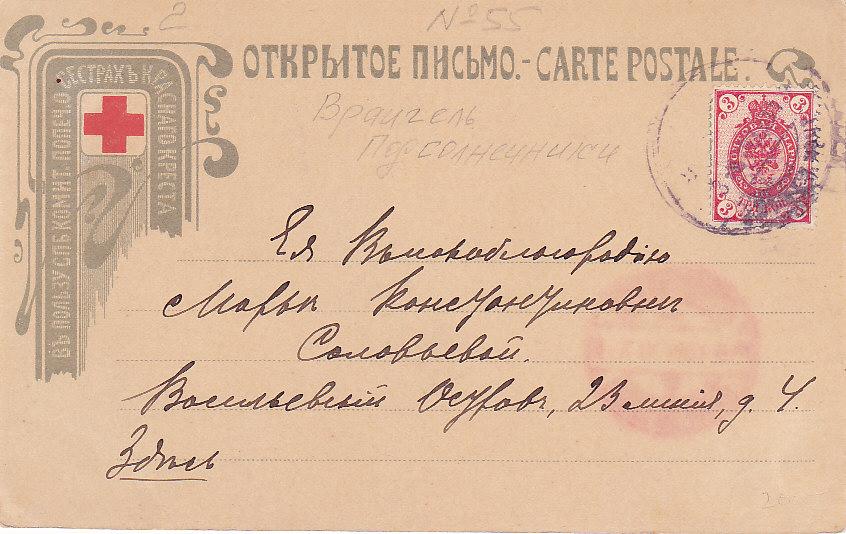 2
№ 55
ОТКРЫТОЕ ПИСЬМО.-CARTE POSTALE.
ВЪ ПОЛЬЗУ СПБ КОМИТ. ПОПЕЧ. О СЕСТРАХЪ КРАСНАГО КРЕСТА
Врангель
Подсолнечники
3 3
ПОЧТОВАЯ МАРКА
3 3
Ея Высокоблагородію
Марьи Константиновны
Соловьевой.
Васильевскій Островъ, 23 линія, д. 4.
Здѣсь